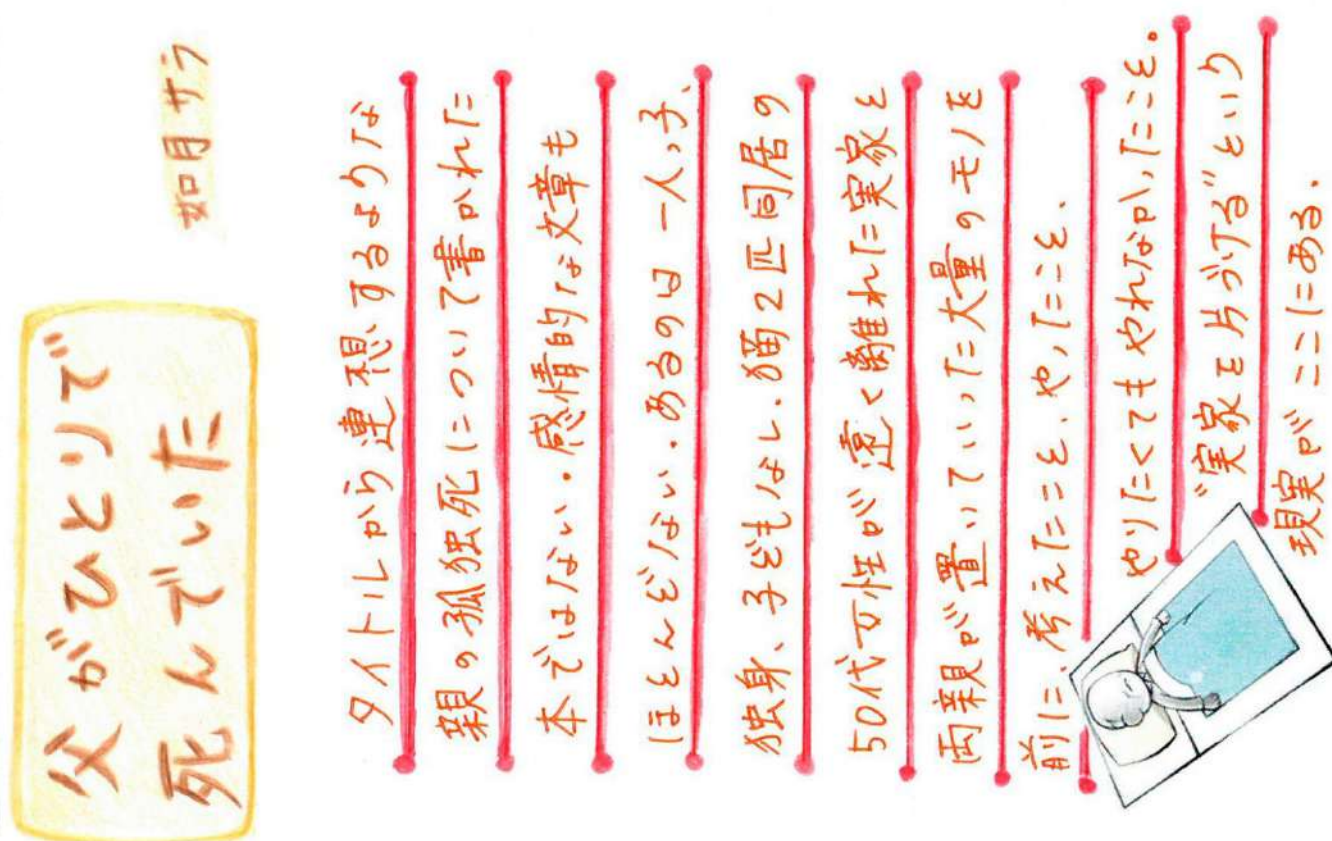 父がひとりで
死んでいた
如月サラ
タイトルから連想するような
親の孤独死について書かれた
本ではない・感情的な文章も
ほとんどない・あるのは一人っ子、
独身、子どもなし、猫2匹同居の
50代女性が遠く離れた実家と
両親が置いていった大量のモノを
前に、考えたこと、やったこと、
やりたくてもやれなかったこと。
“実家を片づける”という
現実がここにある.